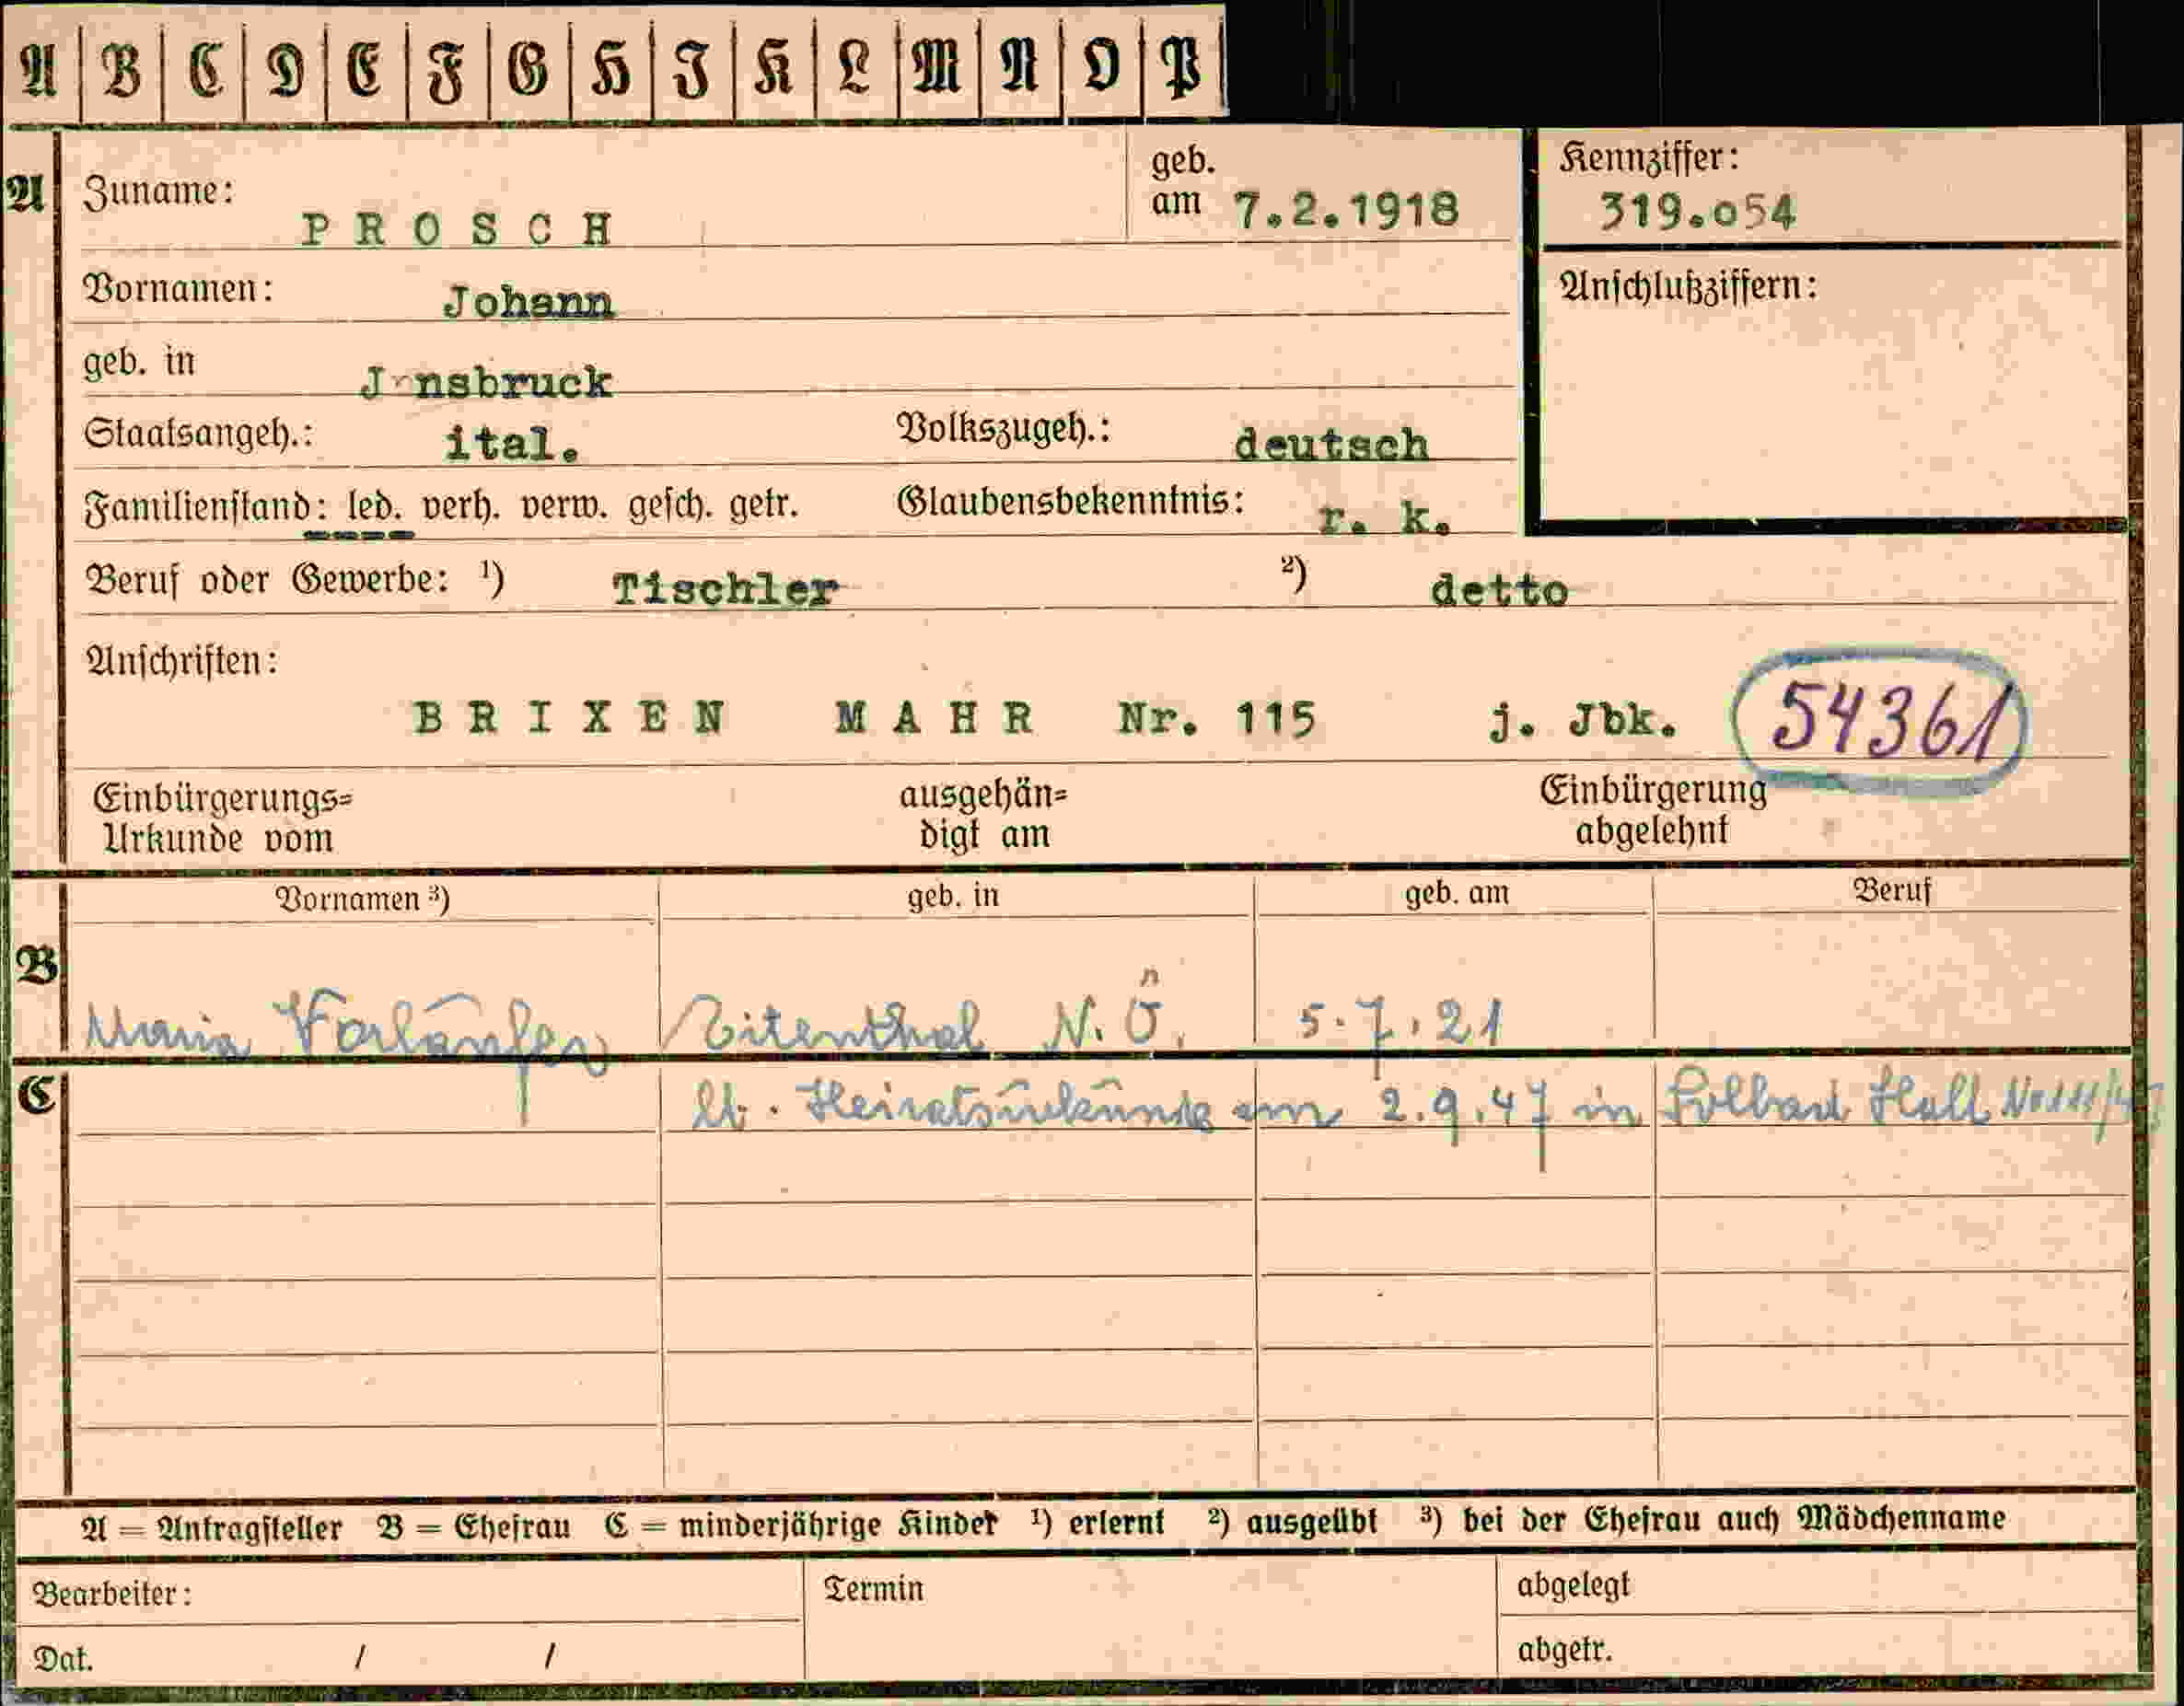 A B C D E F G H J K L M N O P
A Zuname: PROSCH geb. am 7.2.1918 Kennziffer: 319.o54
Vornamen: Johann Anschlußziffern:
geb. in J nsbruck
Staatsangeh.: ital. Volkszugeh.: deutsch
Familienstand: led. verh. verw. gesch. getr. Glaubensbekenntnis: r. k.
Beruf oder Gewerbe: ¹) Tischler ²) detto
Anschriften:
BRIXEN MAHR Nr. 115 j. Jbk. 54361
Einbürgerungs= ausgehän= Einbürgerung
Urkunde vom digt am abgelehnt
Vornamen ³) geb. in geb. am Beruf
B Maria Vorläufer N. Ö. 5.7.21
C lt. Heiratsurkunde am 2.9.47 in Solbad Hall
A = Antragsteller B = Ehefrau C = minderjährige Kinder ¹) erlernt ²) ausgeübt ³) bei der Ehefrau auch Mädchenname
Bearbeiter: Termin abgelegt
Dat. / / abgetr.